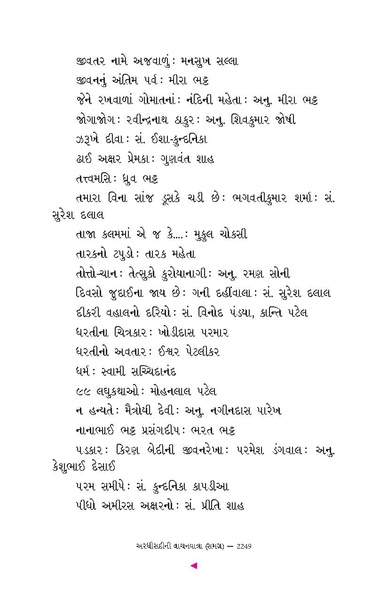 જીવતર નામે અજવાળું : મનસુખ સલ્લા
જીવનનું અંતિમ પર્વ : મીરા ભટ્ટ
જેને રખવાળાં ગોમાતનાં : નંદિની મહેતા : અનુ. મીરા ભટ્ટ
જોગાજોગ : રવીન્દ્રનાથ ઠાકુર : અનુ. શિવકુમાર જોષી
ઝરૂખે દીવા : સં. ઈશા-કુન્દનિકા
ઢાઈ અક્ષર પ્રેમકા : ગુણવંત શાહ
તત્ત્વમસિ : ધ્રુવ ભટ્ટ
તમારા વિના સાંજ ડૂસકે ચડી છે : ભગવતીકુમાર શર્મા : સં.
સુરેશ દલાલ
તાજા કલમમાં એ જ કે.... : મુકુલ ચોકસી
તારકનો ટપુડો : તારક મહેતા
તોત્તો-ચાન : તેત્સુકો કુરોયાનાગી : અનુ. રમણ સોની
દિવસો જુદાઈના જાય છે : ગની દહીંવાલા : સં. સુરેશ દલાલ
દીકરી વહાલનો દરિયો : સં. વિનોદ પંડયા, કાન્તિ પટેલ
ધરતીના ચિત્રકાર : ખોડીદાસ પરમાર
ધરતીનો અવતાર : ઈશ્વર પેટલીકર
ધર્મ : સ્વામી સચ્ચિદાનંદ
૯૯ લઘુકથાઓ : મોહનલાલ પટેલ
ન હન્યતે : મૈત્રોયી દેવી : અનુ. નગીનદાસ પારેખ
નાનાભાઈ ભટ્ટ પ્રસંગદીપ : ભરત ભટ્ટ
પડકાર : કિરણ બેદીની જીવનરેખા : પરમેશ ડંગવાલ : અનુ.
કેશુભાઈ દેસાઈ
પરમ સમીપે : સં. કુન્દનિકા કાપડીઆ
પીધો અમીરસ અક્ષરનો : સં. પ્રીતિ શાહ
અરધીસદીની વાચનયાત્રા (સમગ્ર) — 2249